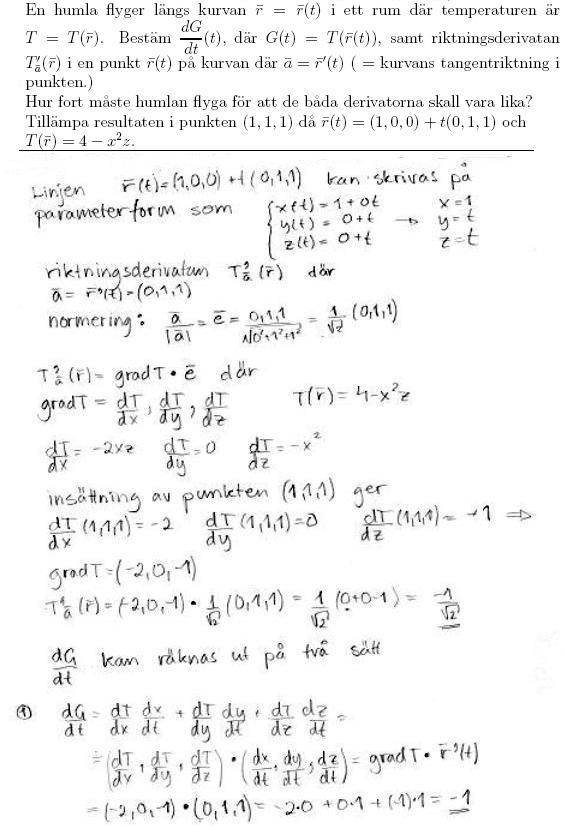 En humla flyger längs kurvan r̄ = r̄(t) i ett rum där temperaturen är
T = T(r̄). Bestäm dG/dt (t), där G(t) = T(r̄(t)), samt riktningsderivatan
T'ₐ̄(r̄) i en punkt r̄(t) på kurvan där ā = r̄'(t) ( = kurvans tangentriktning i
punkten.)
Hur fort måste humlan flyga för att de båda derivatorna skall vara lika?
Tillämpa resultaten i punkten (1, 1, 1) då r̄(t) = (1, 0, 0) + t(0, 1, 1) och
T(r̄) = 4 − x²z.
Linjen r̄(t)=(1,0,0)+t(0,1,1) kan skrivas på
parameterform som { x(t)=1+0t x=1
y(t)=0+t → y=t
z(t)=0+t z=t
riktningsderivatan T'ₐ̄(r̄) där
ā= r̄'(t)=(0,1,1)
normering: ā/|ā| = ē = 0,1,1/√0²+1²+1² = 1/√2 (0,1,1)
T'ₐ̄(r̄)= gradT • ē där
gradT = dT/dx, dT/dy, dT/dz T(r̄)= 4-x²z
dT/dx = -2xz dT/dy = 0 dT/dz = -x²
insättning av punkten (1,1,1) ger
dT/dx (1,1,1)= -2 dT/dy (1,1,1)=0 dT/dz (1,1,1)= -1 ⇒
gradT=(-2,0,-1)
T'ₐ̄(r̄)=(-2,0,-1) • 1/√2 (0,1,1) = 1/√2 (0+0-1) = -1/√2
dG/dt kan räknas ut på två sätt
① dG/dt = dT/dx dx/dt + dT/dy dy/dt + dT/dz dz/dt =
= (dT/dx, dT/dy, dT/dz) • (dx/dt, dy/dt, dz/dt) = gradT • r̄'(t)
= (-2,0,-1) • (0,1,1) = -2·0 + 0·1 + (-1)·1 = -1